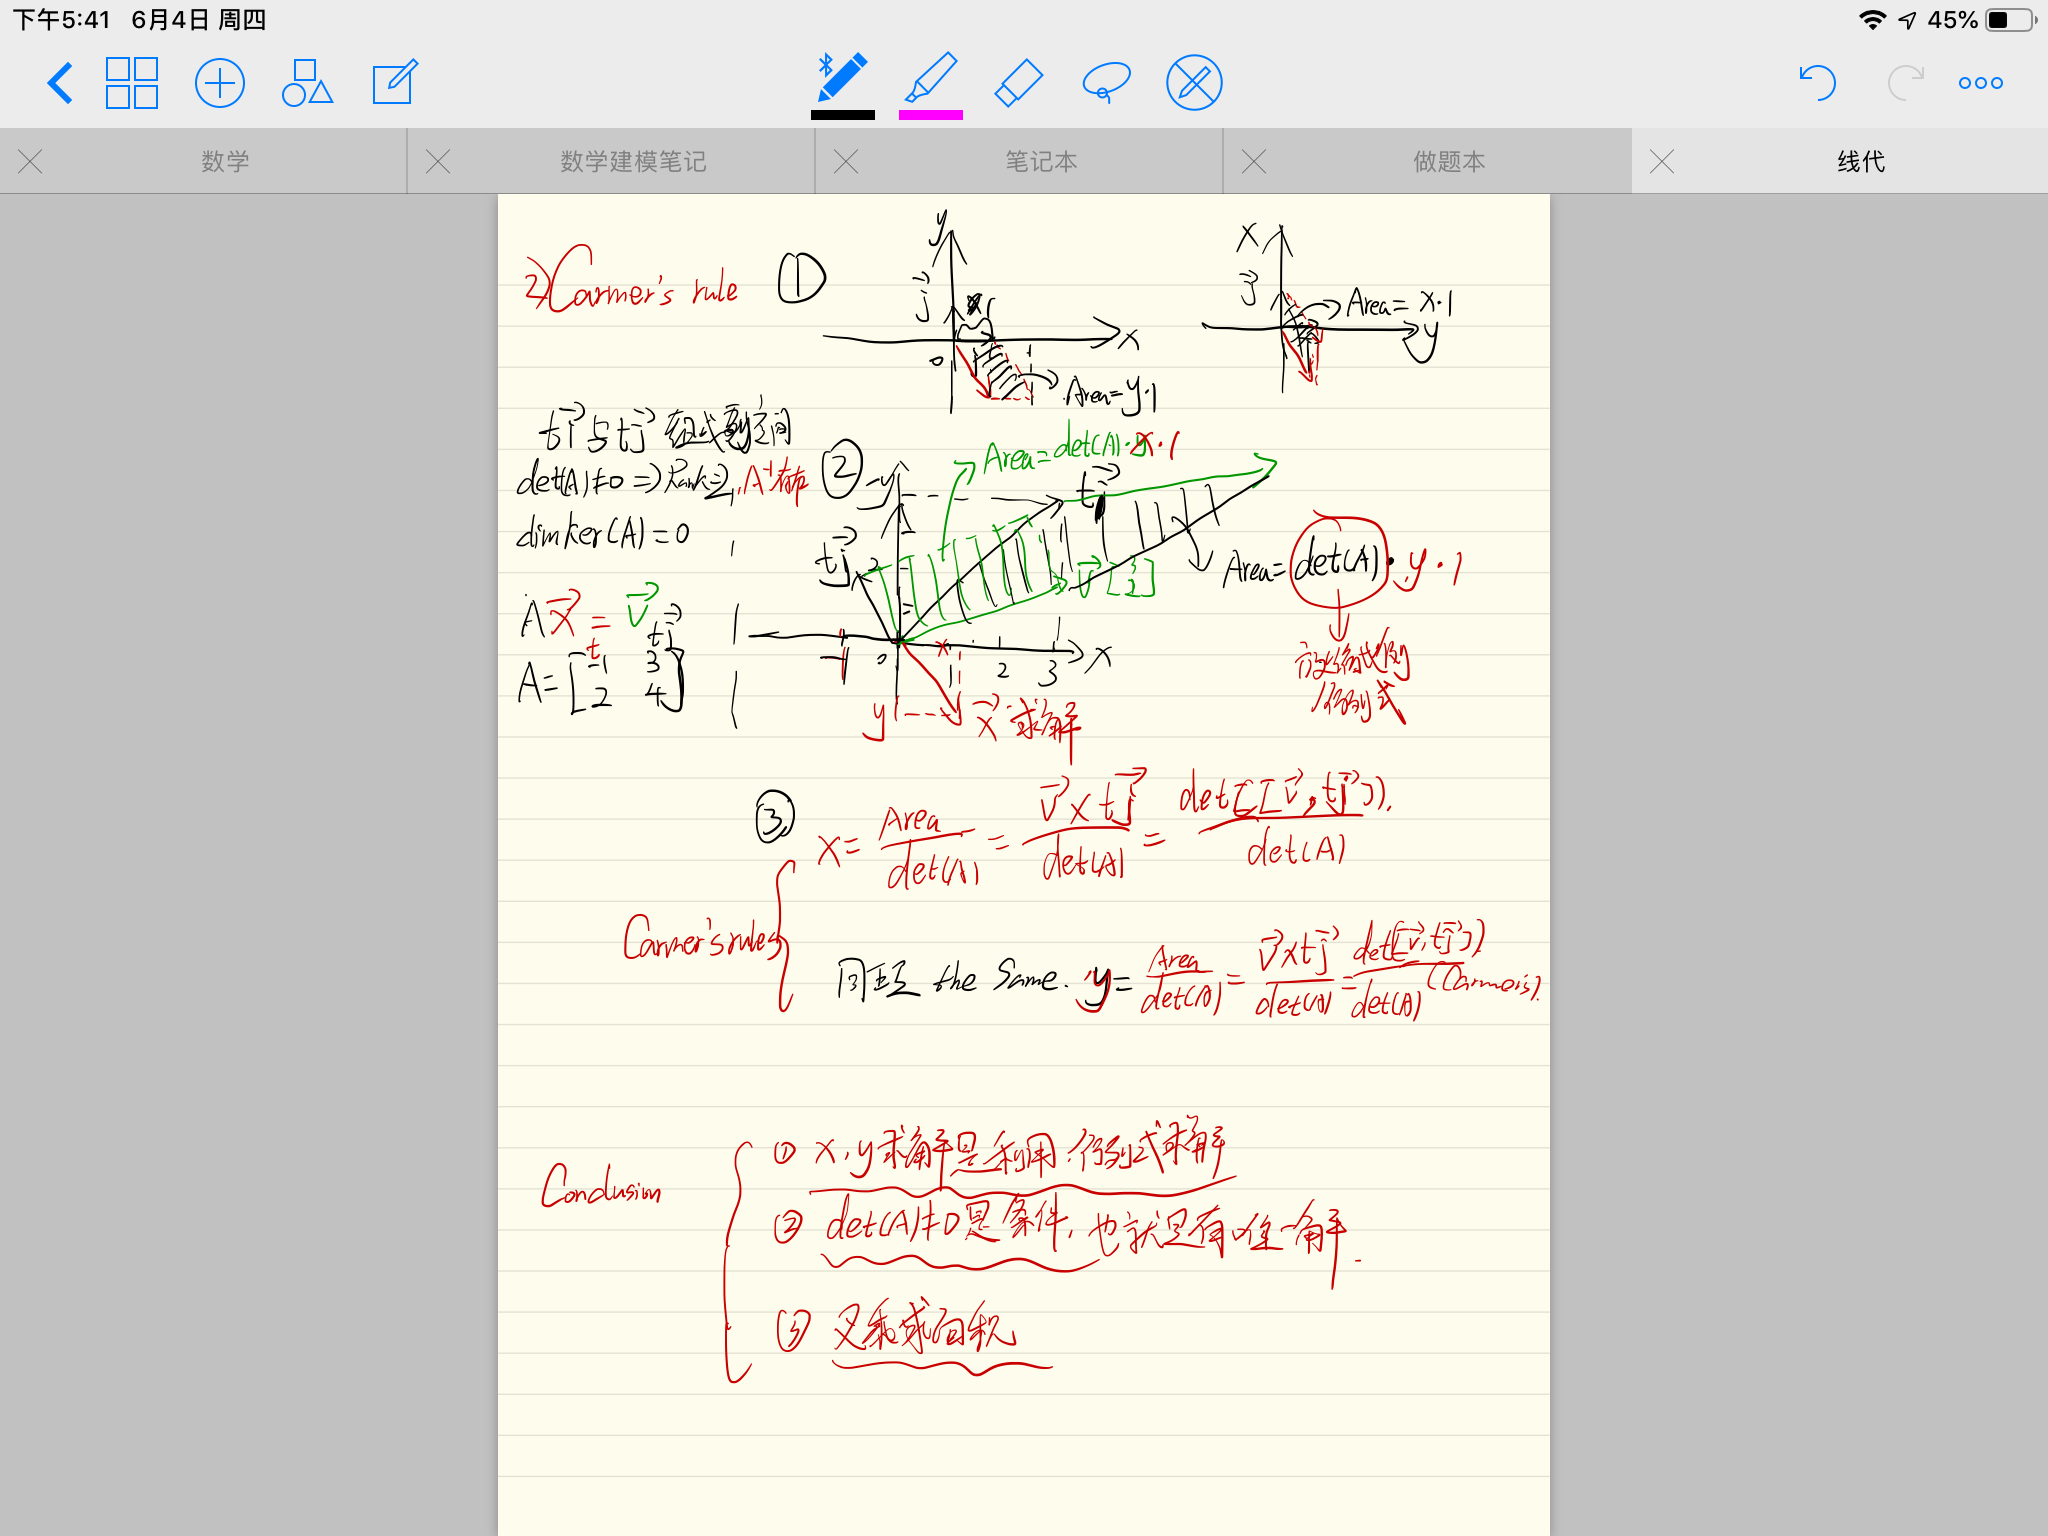 下午5:41 6月4日 周四
45%
数学
数学建模笔记
笔记本
做题本
线代
2) Carmer's rule ①
y
j⃗
1
0
x
Area=y·1
x
j⃗
Area= x·1
y
ti⃗ 与 tj⃗ 组成 空间
det(A)≠0 ⇒ Rank=2, A⁻¹存在
dimker(A)=0
② y
Area=det(A)· x·1
tj⃗
tj⃗
2
v⃗ [3 2]
Area= det(A)· y·1
放缩比例
行列式
Ax⃗ = v⃗
t tj⃗
A= [-1 3
2 4]
-1 0 x 1 2 3 x
y
x⃗ 求解
③
x= Area/det(A) = v⃗×tj⃗/det(A) = det([v⃗, tj⃗])/det(A)
Carmer's rules
同理 the Same. y= Area/det(A) = v⃗×tj⃗/det(A) = det([v⃗, tj⃗])/det(A) (Carmer's).
Conclusion
① x, y求解是利用行列式求解
② det(A)≠0是条件, 也就是有唯一解.
③ 叉乘求面积